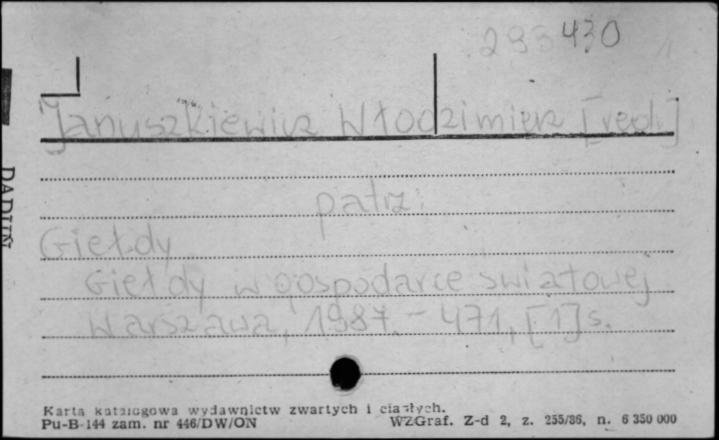 293430
Januszkiewicz Włodzimierz [red.]
patrz:
Giełdy
Giełdy w gospodarce światowej
Warszawa, 1987. - 471, [1] s.
Karta katalogowa wydawnictw zwartych i ciągłych.
Pu-B-144 zam. nr 446/DW/ON WZGraf. Z-d 2, z. 255/86, n. 6 350 000